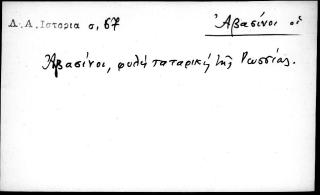 Δ. Α. Ιστορια σ. 67
Ἀβασίνοι οἱ
Ἀβασίνοι, φυλὴ ταταρικὴ τῆς Ρωσσίας.